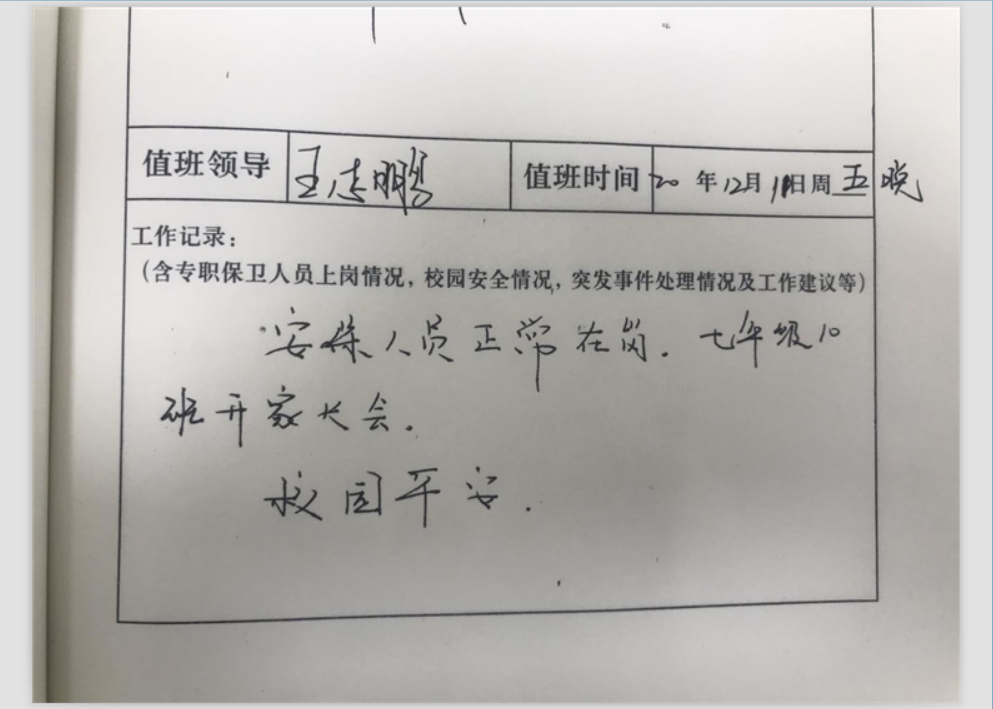 值班领导 王志鹏 值班时间 20年12月11日周五晚
工作记录：
（含专职保卫人员上岗情况，校园安全情况，突发事件处理情况及工作建议等）
安保人员正常在岗．七年级10
班开家长会．
校园平安．